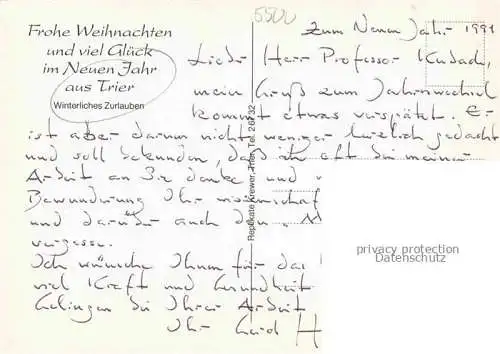 5500
Frohe Weihnachten
und viel Glück
im Neuen Jahr
aus Trier
Winterliches Zurlauben
Zum Neuen Jahr 1991
Lieber Herr Professor
mein Gruß zum Jahreswechsel
kommt etwas verspätet. Er
ist aber darum nicht weniger herzlich gedacht
und soll bekunden, daß ich oft bei meiner
Arbeit an Sie denke und
Bewunderung Ihr
und darüber auch den
vergesse.
Ich wünsche Ihnen für das
viel Kraft und Gesundheit
Gelingen bei Ihrer Arbeit
Ihr Gerd H
privacy protection
Datenschutz